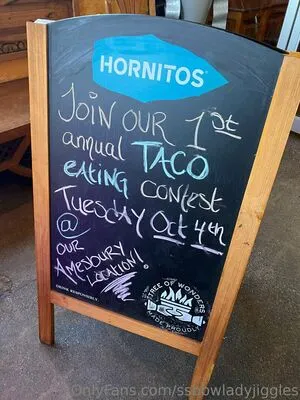 HORNITOS
JOIN OUR 1st
annual TACO
eATING CONTEST
Tuesday Oct 4th
@
OUR
AMESBURY
LOCATION!
DRINK RESPONSIBLY.
TREE OF WONDERS
MADE PROUDLY
OnlyFans.com/ssnowladyjiggles